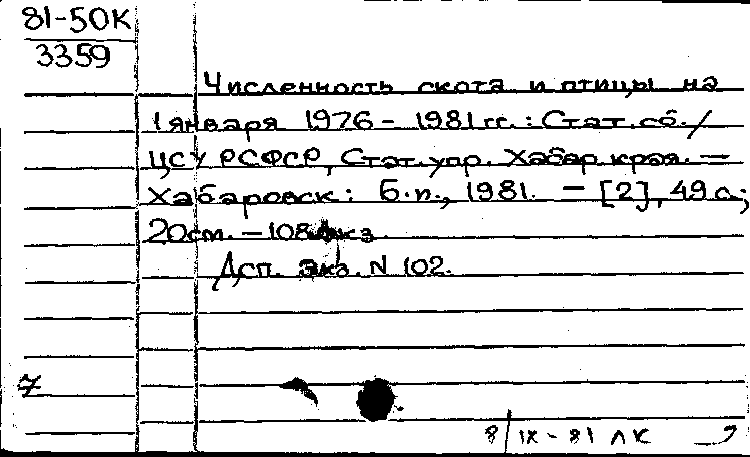 81-50К
3359
Численность скота и птицы на
1 января 1976 - 1981 гг.: Стат. сб./
ЦСУ РСФСР, Стат. упр. Хабар. края. —
Хабаровск: Б.и., 1981. — [2], 49 с.;
20 см. — 108 экз.
Дсп. Экз. N 102.
7
8/IX - 81 ЛК